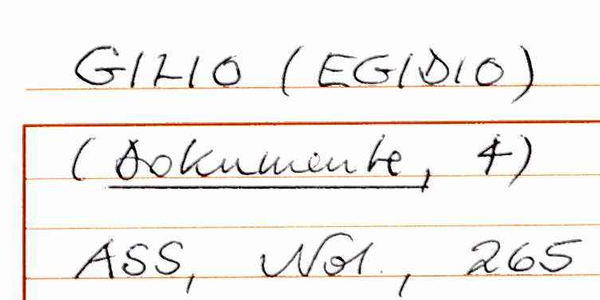 GILIO (EGIDIO)
(Dokumente, 4)
ASS, Not., 265